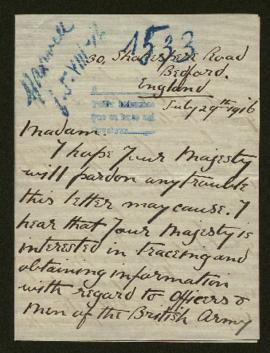 1533
30, Shakespeare Road
Bedford.
England
July 29th 1916
Madam.
I hope Your Majesty
will pardon any trouble
this letter may cause. I
hear that Your Majesty is
interested in tracing and
obtaining information
with regard to Officers &
Men of the British Army